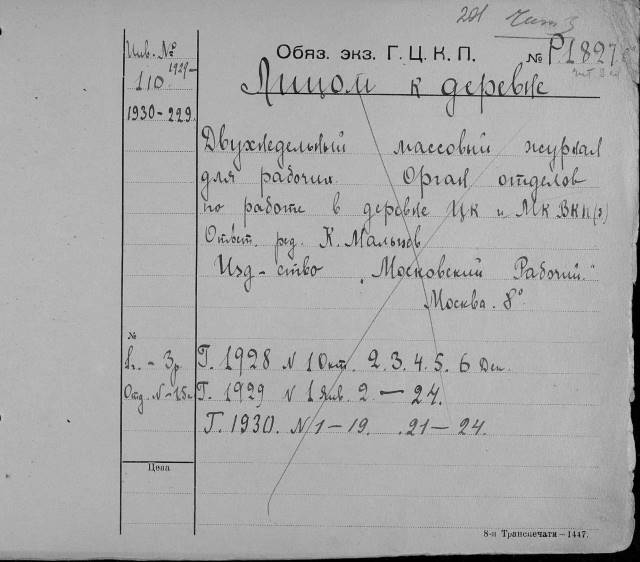 201 Чит 3
Инв. №
110 1929 —
1930 - 229.
Обяз. экз. Г. Ц. К. П. № Р.1827
Лицом к деревне
Двухнедельный массовый журнал
для рабочих. Орган отделов
по работе в деревне ЦК и МК ВКП(б)
Ответ. ред. К. Мальцев
Изд-ство „Московский Рабочий."
Москва. 8°
№
1 г. - 3 р
Отд. N - 15к
Г. 1928 N 1 Окт. 2. 3. 4. 5. 6 Дек.
Г. 1929 N 1 Янв. 2 — 24.
Г. 1930. N 1 — 19. 21 — 24.
Цена
8-я Транспечати — 1447.